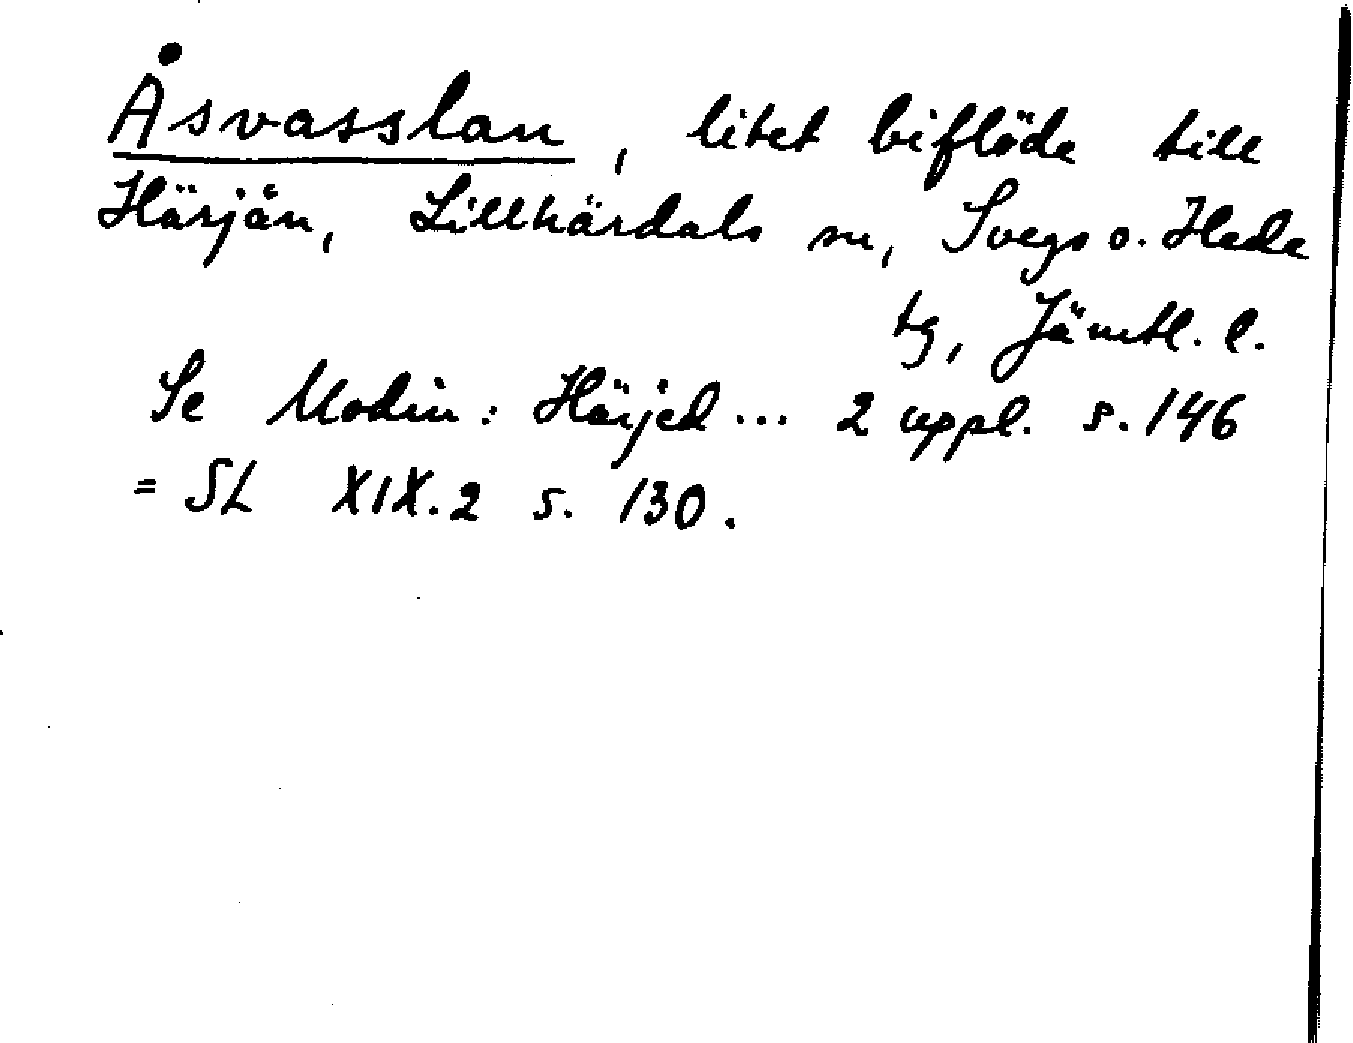 Åsvasslan, litet biflöde till
Härjån, Lillhärdals sn, Svegs o. Hede
tg, Jämtl. l.
Se Modin: Härjed... 2 uppl. s. 146
= SL XIX.2 s. 130.